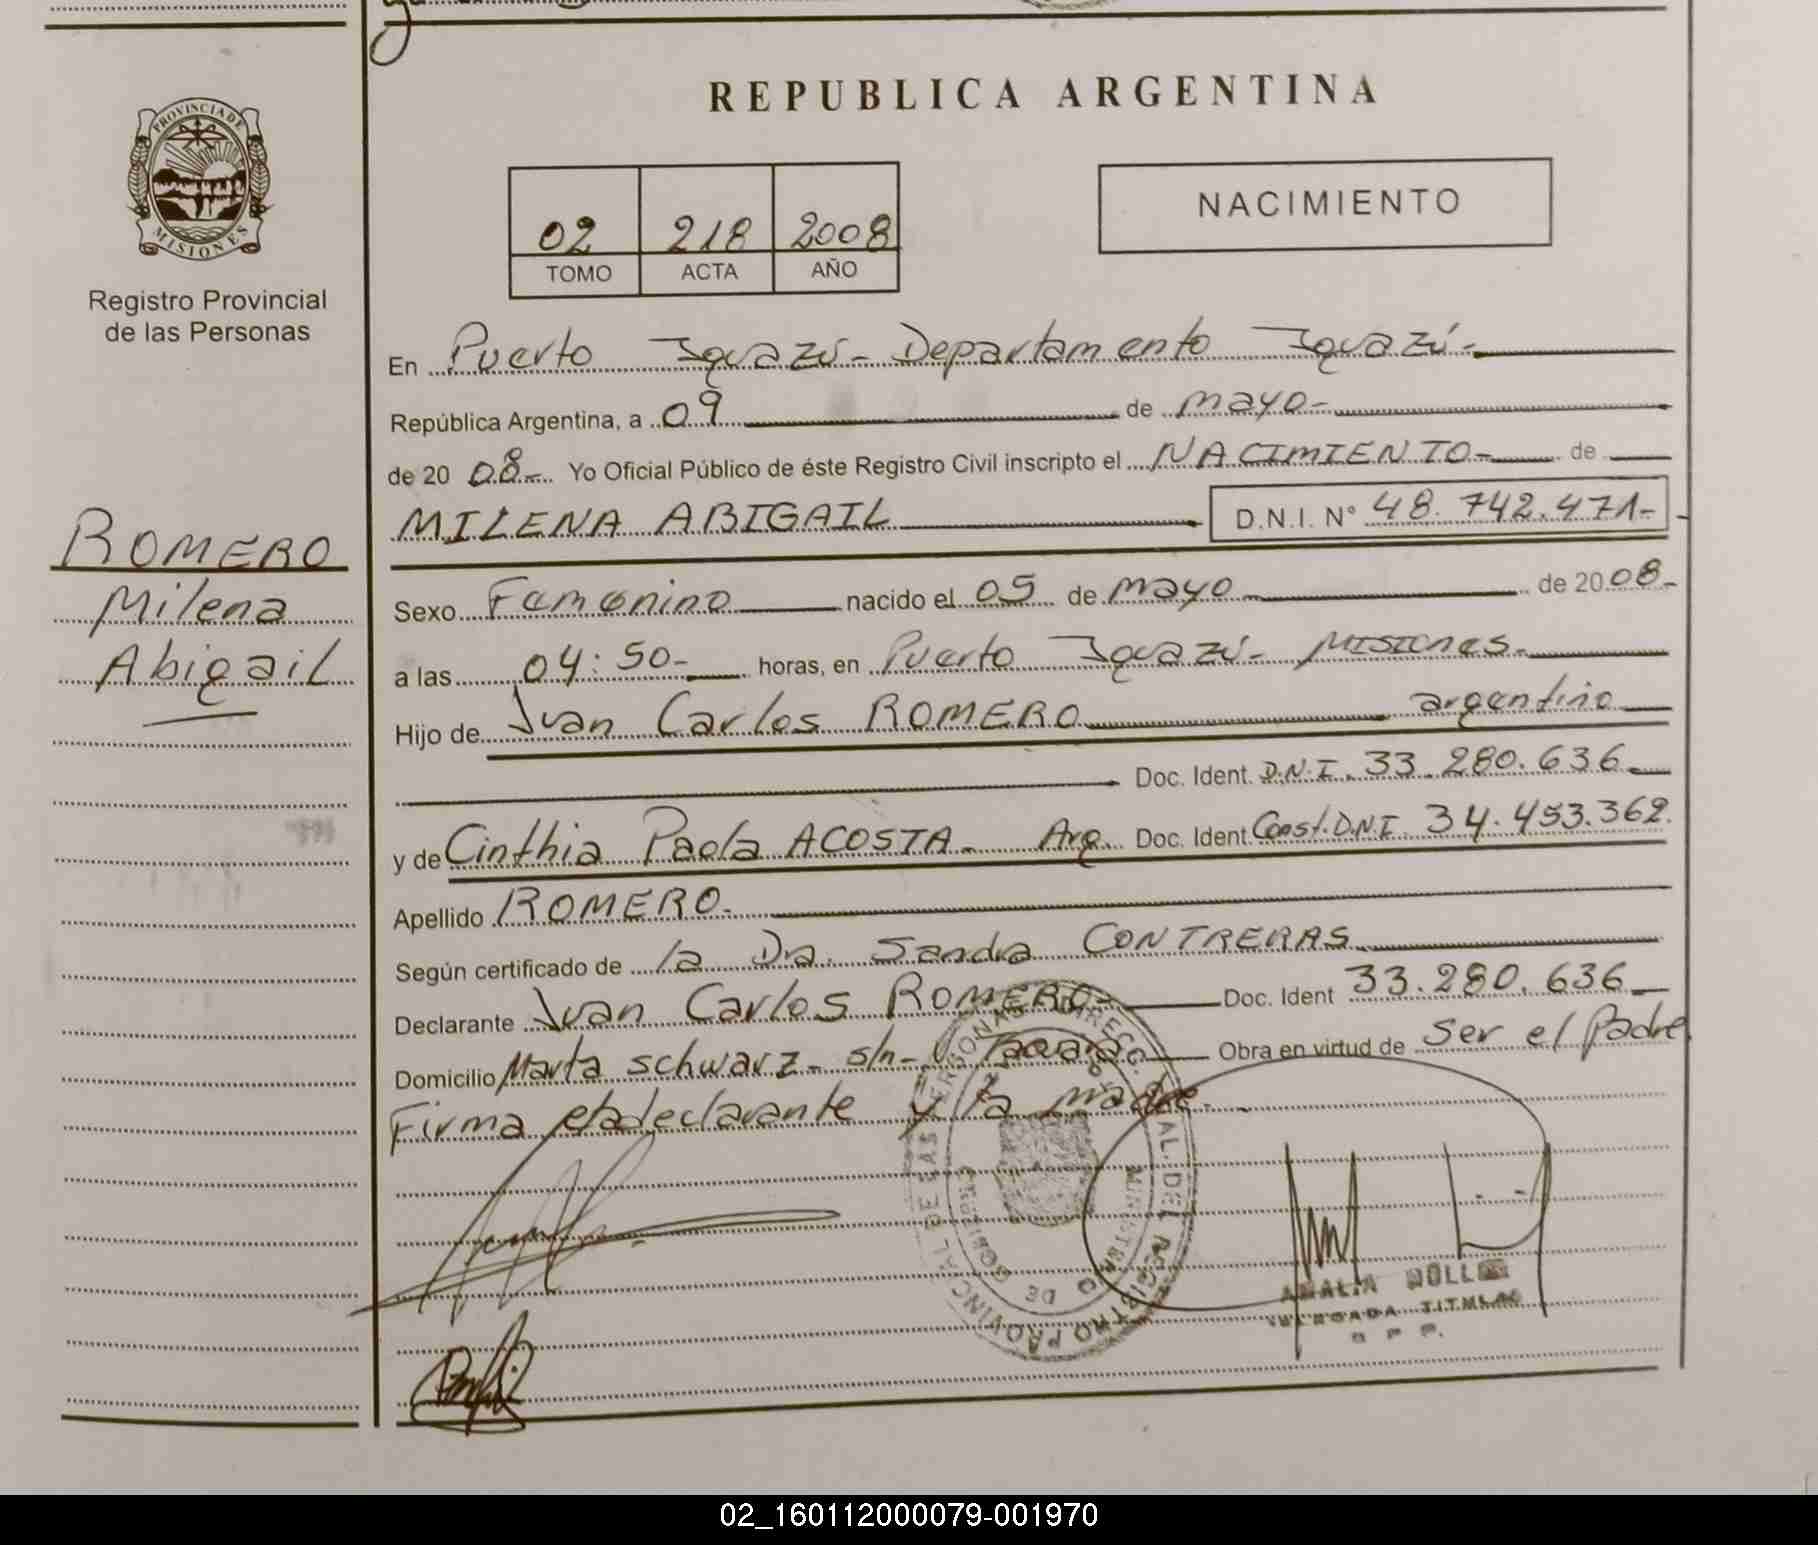 REPUBLICA ARGENTINA
PROVINCIA DE
MISIONES
Registro Provincial
de las Personas
ROMERO
Milena
Abigail
02 218 2008
TOMO ACTA AÑO
NACIMIENTO
En Puerto Iguazú - Departamento Iguazú -
República Argentina, a 09 de mayo -
de 20 08 - Yo Oficial Público de éste Registro Civil inscripto el NACIMIENTO - de
MILENA ABIGAIL D.N.I. N° 48.742.471-
Sexo Femenino nacido el 05 de mayo - de 20 08 -
a las 04:50- horas, en Puerto Iguazú - MISIONES -
Hijo de Juan Carlos ROMERO argentino
Doc. Ident. D.N.I. 33.280.636
y de Cinthia Paola ACOSTA - Arg. Doc. Ident Const. D.N.I 34.453.362.
Apellido ROMERO -
Según certificado de la Dra. Sandra CONTRERAS
Declarante Juan Carlos ROMERO - Doc. Ident 33.280.636
Domicilio Marta Schwarz - s/n - Obra en virtud de Ser el Padre.
Firma el declarante y la madre -
REGISTRO PROVINCIAL DE LAS PERSONAS
MINISTERIO DE GOBIERNO
AMALIA
DELEGADA TITULAR
R P P.
02_160112000079-001970